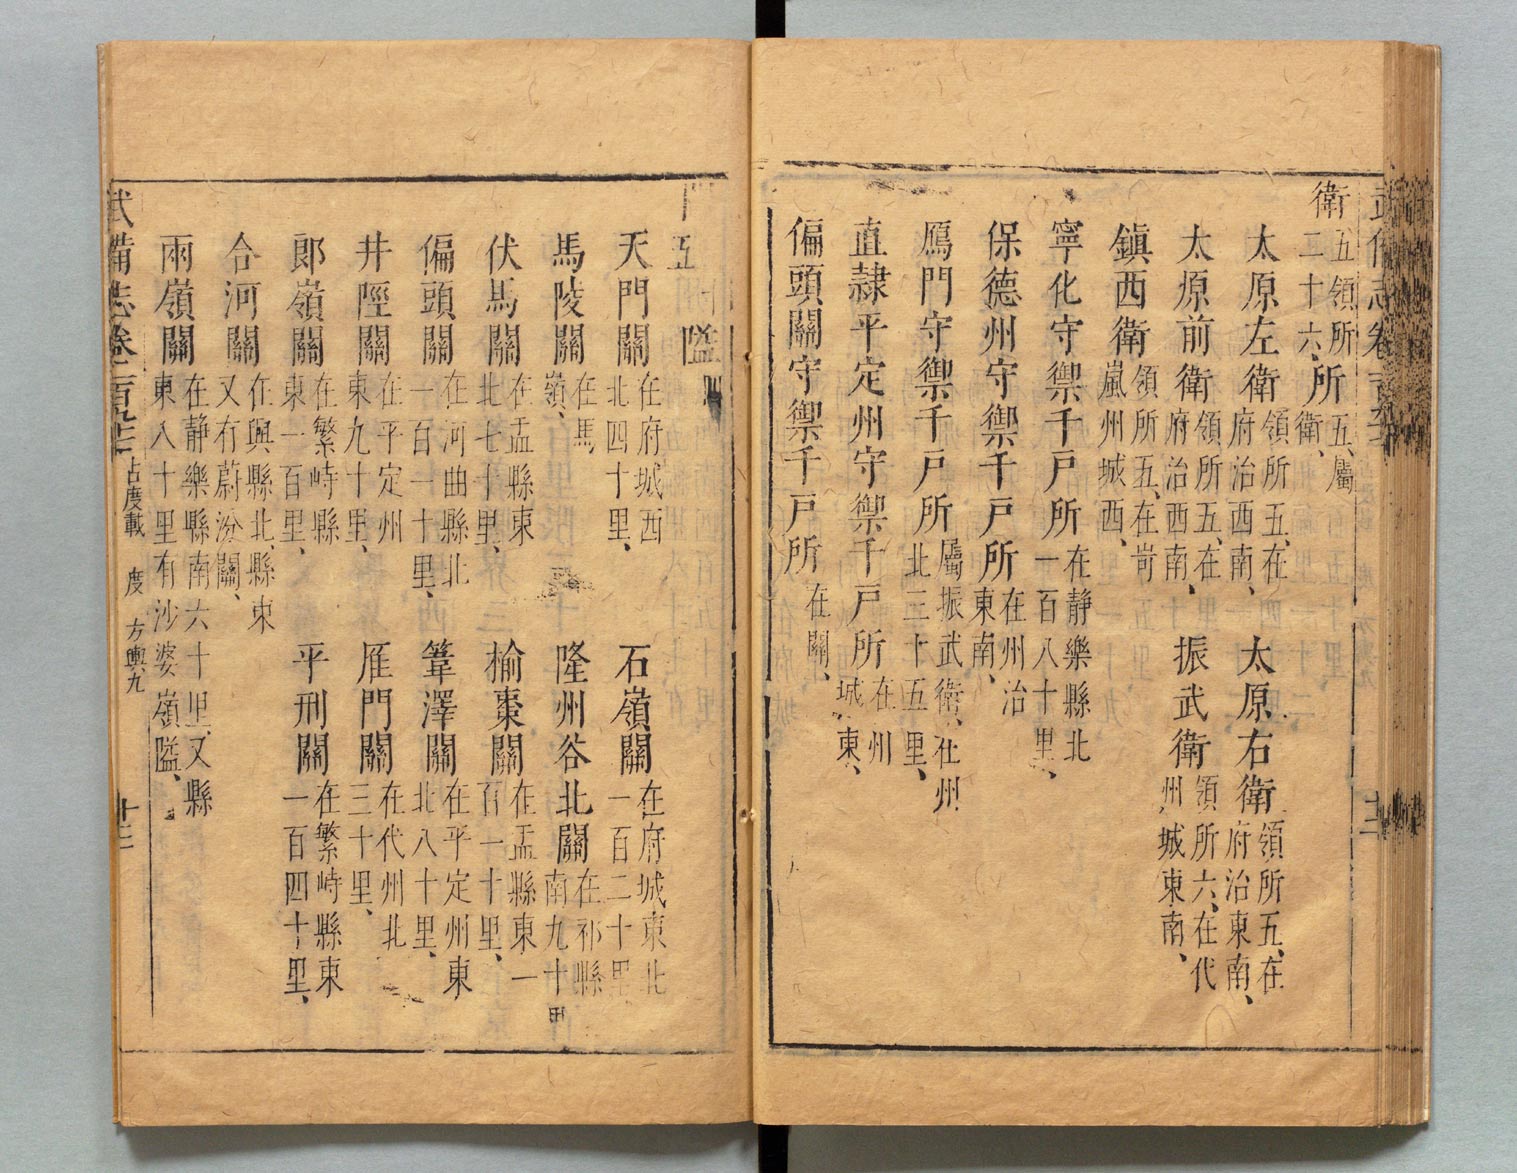 衛五領所二十六、所五、屬衛、
太原左衛領所五、在府治西南、太原右衛領所五、在府治東南、
太原前衛領所五、在府治西南、振武衛領所六、在代州城東南、
鎮西衛領所五、在岢嵐州城西、
寧化守禦千戶所在静樂縣北一百八十里、
保德州守禦千戶所在州治東南、
鴈門守禦千戶所屬振武衛、在州北三十五里、
直隸平定州守禦千戶所在州城東、
偏頭關守禦千戶所在關、
五 隘
天門關在府城西北四十里、石嶺關在府城東北一百二十里
馬陵關在馬嶺、隆州谷北關在祁縣南九十里
伏馬關在盂縣東北七十里、榆棗關在盂縣東一百一十里、
偏頭關在河曲縣北一百一十里、葦澤關在平定州東北八十里、
井陘關在平定州東九十里、雁門關在代州北三十里、
郎嶺關在繁峙縣東一百里、平刑關在繁峙縣東一百四十里、
合河關在興縣北、縣東又有蔚汾關、
兩嶺關在静樂縣南六十里、又縣東八十里有沙婆嶺隘、
武備志卷 占度載 度 方輿九 十三